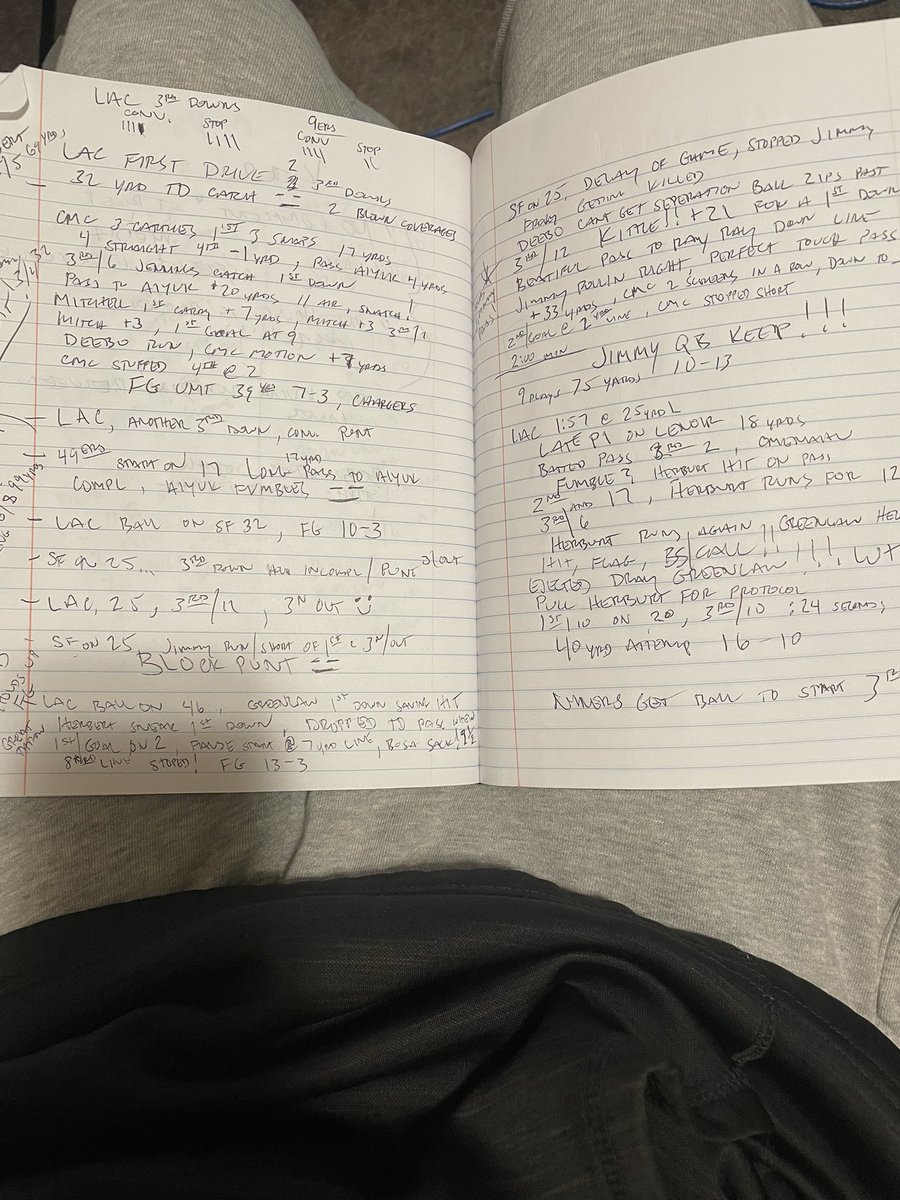 LAC 3RD DOWNS
CONV. STOP 9ERS CONV STOP
IIII IIII IIII II
LAC FIRST DRIVE 2 3RD DOWNS
— 32 YRD TD CATCH 2 BLOWN COVERAGES
CMC 3 CARRIES 1ST 3 SNAPS 17 YARDS,
4 STRAIGHT 4TH -1 YRD, PASS AIYUK 4 YARDS
3RD/6 JENNINGS CATCH 1ST DOWN
PASS TO AIYUK +20 YRDS 11 AIR, SNATCH!
MITCHELL 1ST CARRY +7 YRDS, MITCH +3 3RD/1
MITCH +3, 1ST GOAL AT 9
DEEBO RUN, CMC MOTION +7 YARDS
CMC STUFFED 4TH @ 2
FG 7-3, CHARGERS
— LAC, ANOTHER 3RD DOWN, CONV. PUNT
— 49ERS START ON 17 LONG PASS TO AIYUK
17YRD
COMPL, AIYUK FUMBLES
— LAC BALL ON SF 32, FG 10-3
— SF ON 25... 3RD DOWN INCOMPL/PUNT 3/OUT
— LAC, 25, 3RD/12, 3 N OUT
— SF ON 25 Jimmy RUN/SHORT OF 1ST 3N/OUT
BLOCK PUNT
LAC BALL ON 46, GREENLAW 1ST DOWN SAVING HIT
HERBURT SNEAK 1ST DOWN, DROPPED TD PASS
1ST/GOAL ON 2, FALSE START @ 7 YRD LINE, BOSA SACK!
8YRD LINE STOPED! FG 13-3
SF ON 25, DELAY OF GAME, STOPPED JIMMY
FROM GETTING KILLED
DEEBO CANT GET SEPERATION BALL ZIPS PAST
3RD/12 KITTLE!! +21 FOR A 1ST DOWN
BEAUTIFUL PASS TO RAY RAY DOWN LINE
JIMMY ROLLIN RIGHT, PERFECT TOUCH PASS
+33 YARDS, CMC 2 SCREENS IN A ROW, DOWN TO
2ND/GOAL @ 2 YRD LINE, CMC STOPPED SHORT
2:00 MIN JIMMY QB KEEP!!!
9 PLAYS 75 YARDS 10-13
LAC 1:57 @ 25 YRD L
LATE PI ON LENOIR 18 YRDS
BATTED PASS 2, OMENAIAH
FUMBLE? HERBURT HIT ON PASS
2ND AND 17, HERBURT RUNS FOR 12
3RD/6
HERBURT RUNS AGAIN GREENLAW HEL
HIT, FLAG, BS CALL!!
EJECTED DRAY GREENLAW!!! WT
PULL HERBURT FOR PROTOCOL
1ST/10 ON 20, 3RD/10 :24 SECONDS,
40 YRD ATTEMP 16-10
NINERS GET BALL TO START 3RD